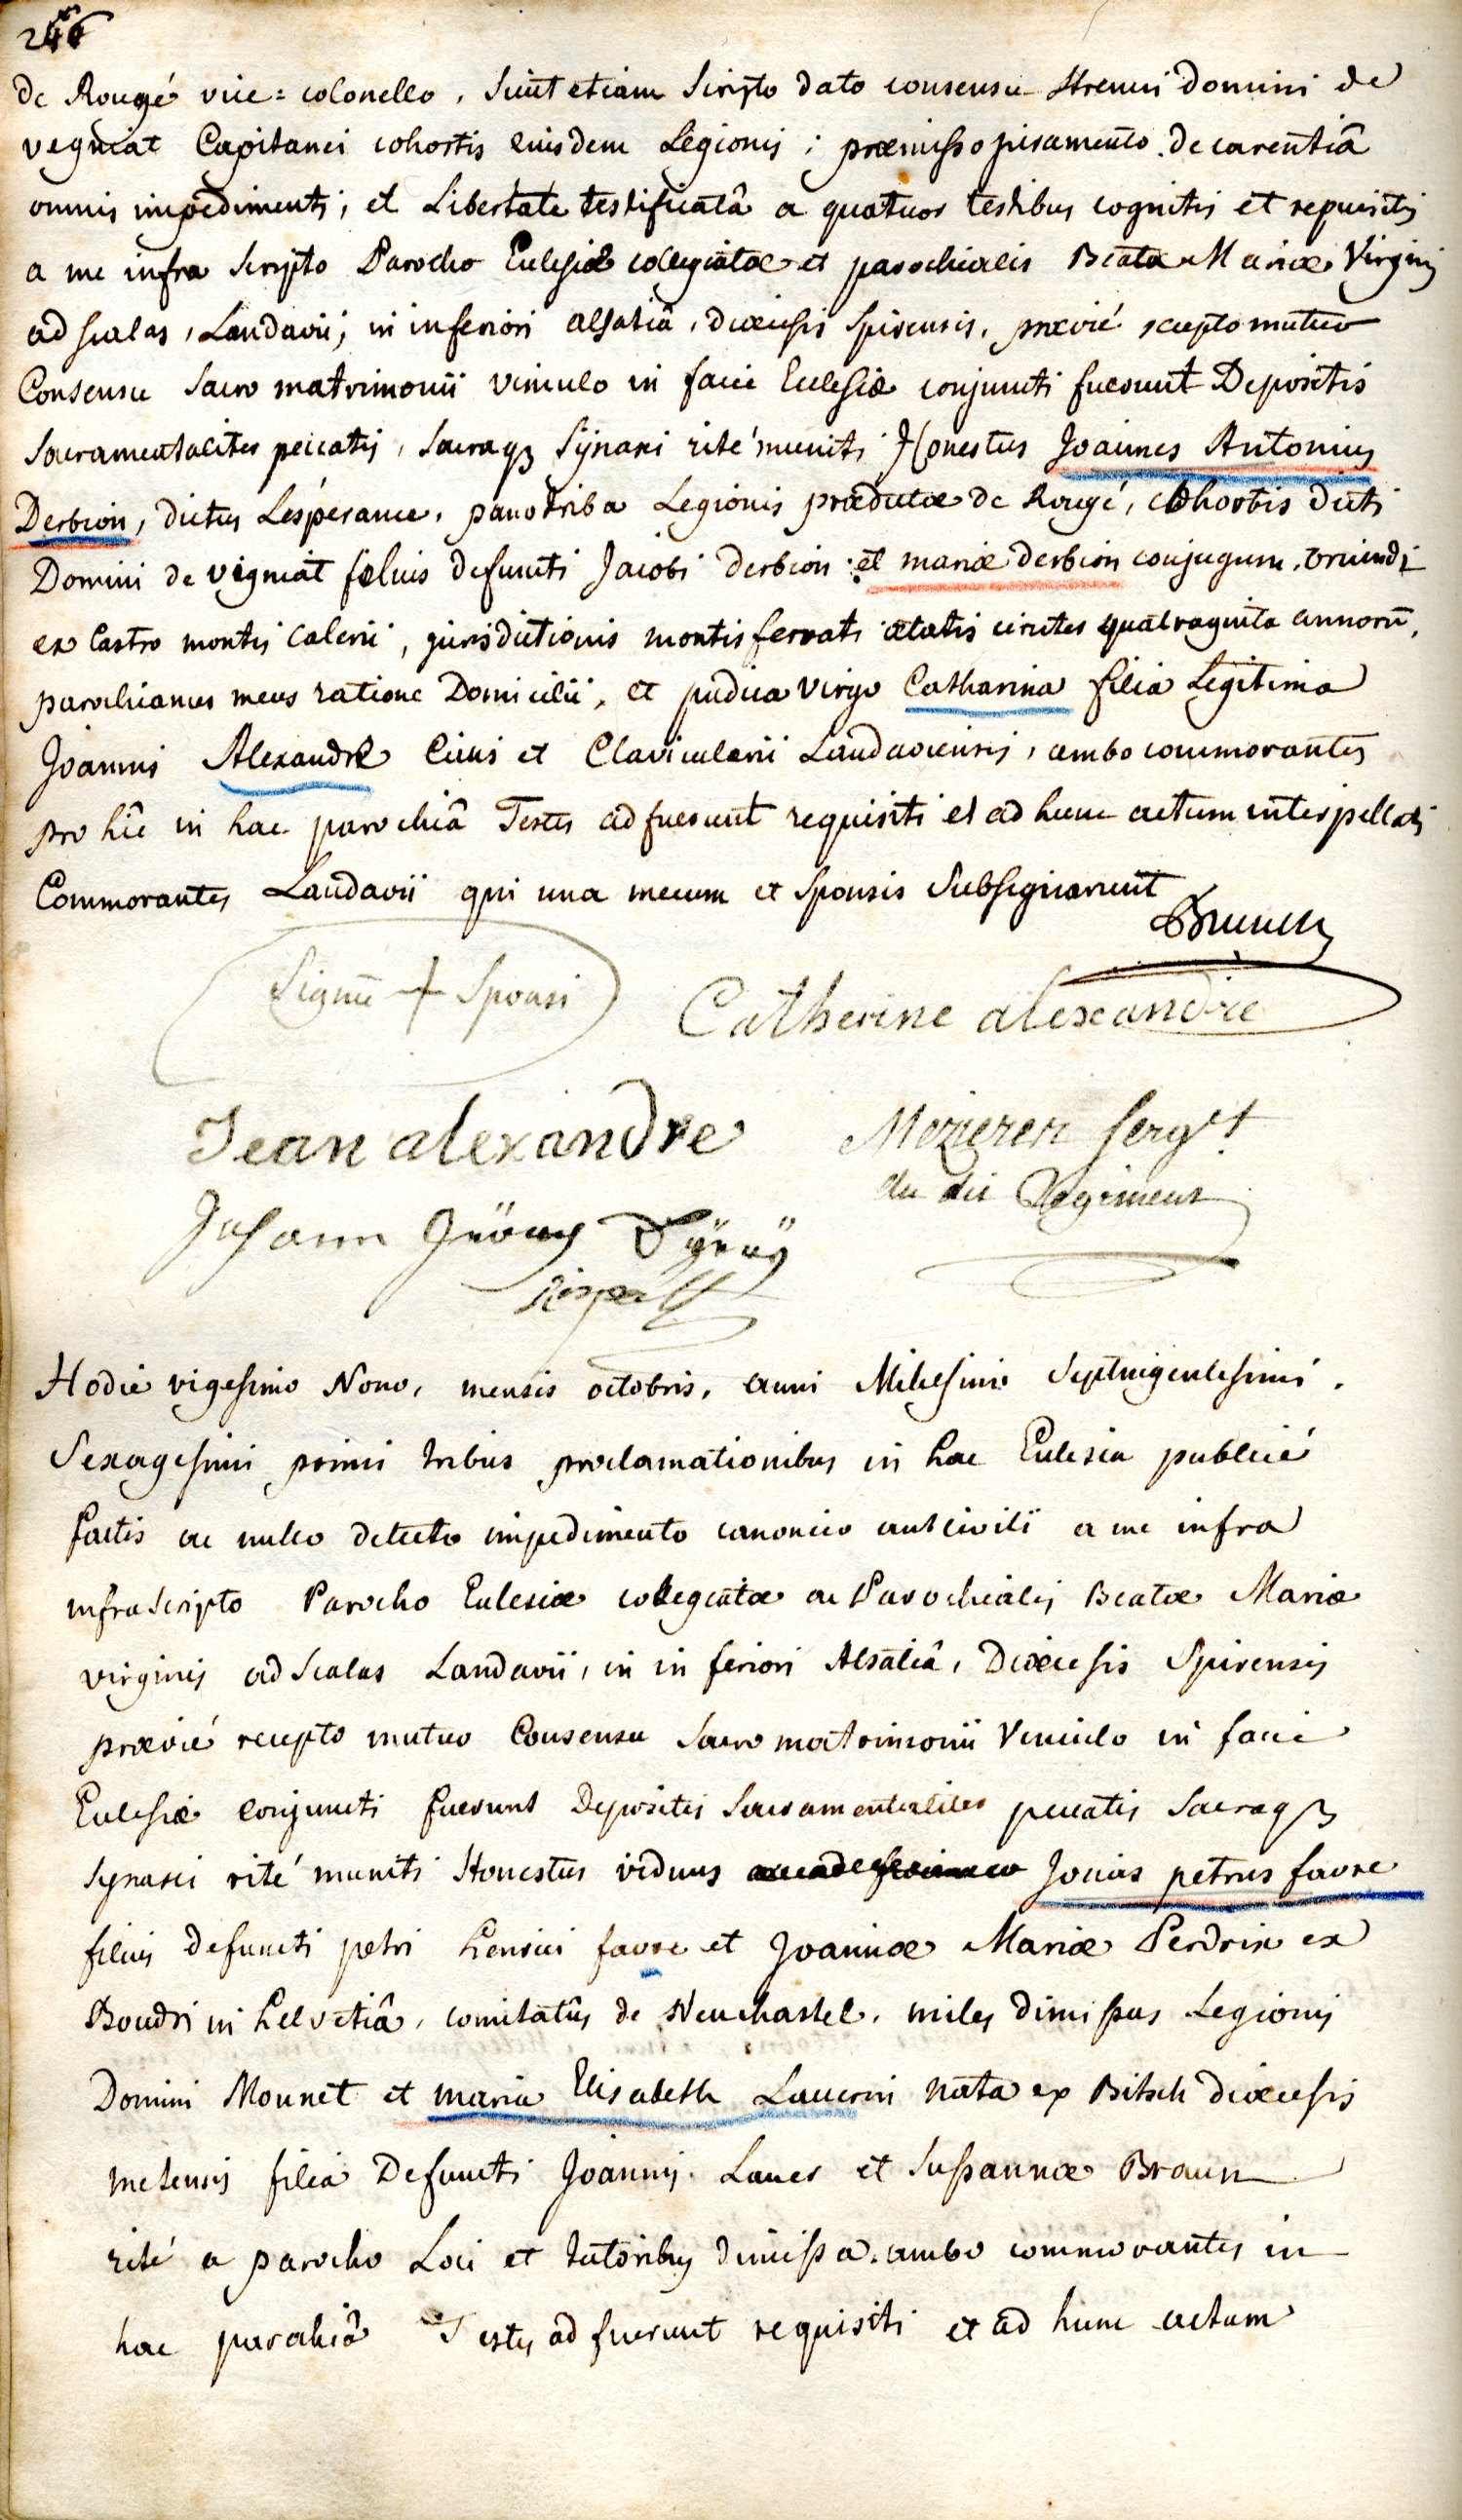 246
de Rougé vice=colonello, sicut etiam scripto dato consensu strenui domini de
vegniat Capitanei cohortis eiusdem Legionis; præmisso juramento de carentiâ
omnis impedimenti, et Libertate testificatâ a quatuor testibus cognitis et requisitis
a me infra scripto Parocho Ecclesiæ collegiatæ et parochialis Beatæ Mariæ Virginis
ad scalas, Landavii, in inferiori alsatiâ, diœcesis Spirensis, prævié recepto mutuo
Consensu sacro matrimonii vinculo in facie Ecclesiæ conjuncti fuerunt Depositis
sacramentaliter peccatis, sacraq3 Synaxi rité muniti Honestus Joannes Antonius
Derbion, dictus Lésperance, Legionis prædictæ de Rougé, cohortis dicti
Domini de vigniat filius defuncti Jacobi derbion et mariæ derbion conjugum, oriundi
ex Castro montis calerii, jurisdictionis montisferrati ætatis circiter quatraginta annorū,
parochianus meus ratione Domicilii, et pudica virgo Catharina filia Legitima
Joannis Alexandre Civis et Clavicularii Landaviensis, ambo commorantes
pro hîc in hac parochiâ Testes adfuerunt requisiti et ad hunc actum interpellati
Commorantes Landavii qui una mecum et sponsis subsignarunt
Signū + Sponsi
Catherine alexandre
Jean alexandre
Mezieren sergt
du dit Regiment
Johann
Hodie vigesimo Nono, mensis octobris, anni Millesimi Septuigentesimi,
Sexagesimi primi tribus proclamationibus in hac Ecclesia publicé
factis ac nullo detecto impedimento canonico aut civili a me infra
infrascripto Parocho Eclesiæ collegiatæ ac Parochialis Beatæ Mariæ
virginis ad Scalas Landavii, in inferiori Alsatiâ, Diœcesis Spirensis
prævié recepto mutuo Consensu sacro matrimonii Vinculo in facie
Eclesiæ conjuncti fuerunt Depositis sacramentaliter peccatis sacraq3
synaxi rité muniti Honestus viduus Jonas petrus favre
filius defuncti petri henrici favre et Joannæ Mariæ Perdrix ex
Boudri in helvetiâ, comitatûs de Neuchastel, miles dimissus Legionis
Domini Monnet et maria Elisabeth Lauerin nata ex Bitsch diœcesis
metensis filia Defuncti Joannis Lauer et Sussannæ Braun
rité a parocho Loci et tutoribus dimissa, ambo commorantes in
hac parochiâ Testes adfuerunt requisiti et ad hunc actum